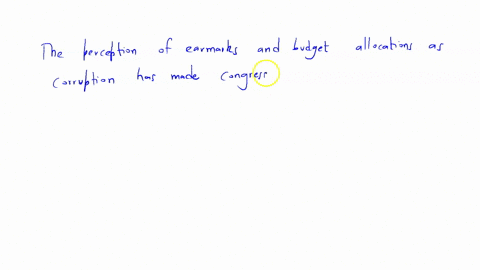 The perception of earmarks and budget allocations as
corruption has made congress